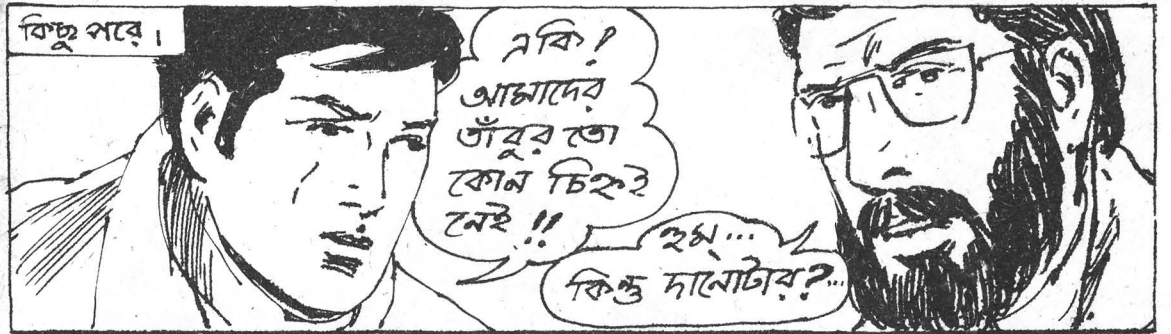 কিছু পরে।
একি!
আমাদের
তাঁবুর তো
কোন চিহ্নই
নেই!!
হুম্...
কিন্তু দানোটার?...